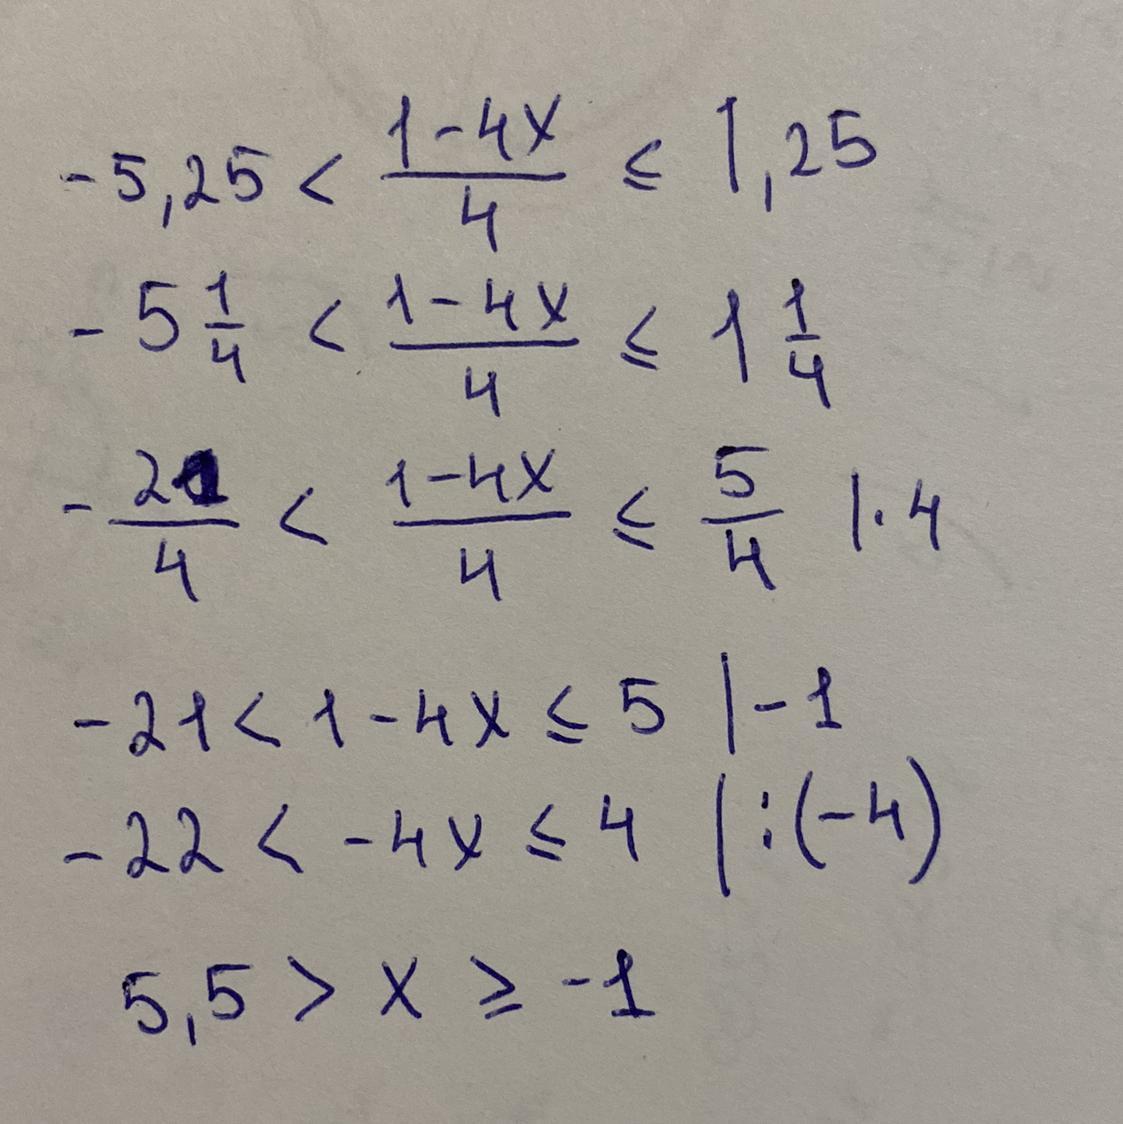 -5,25 < \frac{1-4x}{4} ≤ 1,25
-5\frac{1}{4} < \frac{1-4x}{4} ≤ 1\frac{1}{4}
-\frac{21}{4} < \frac{1-4x}{4} ≤ \frac{5}{4} |·4
-21 < 1-4x ≤ 5 |-1
-22 < -4x ≤ 4 |:(-4)
5,5 > x ≥ -1